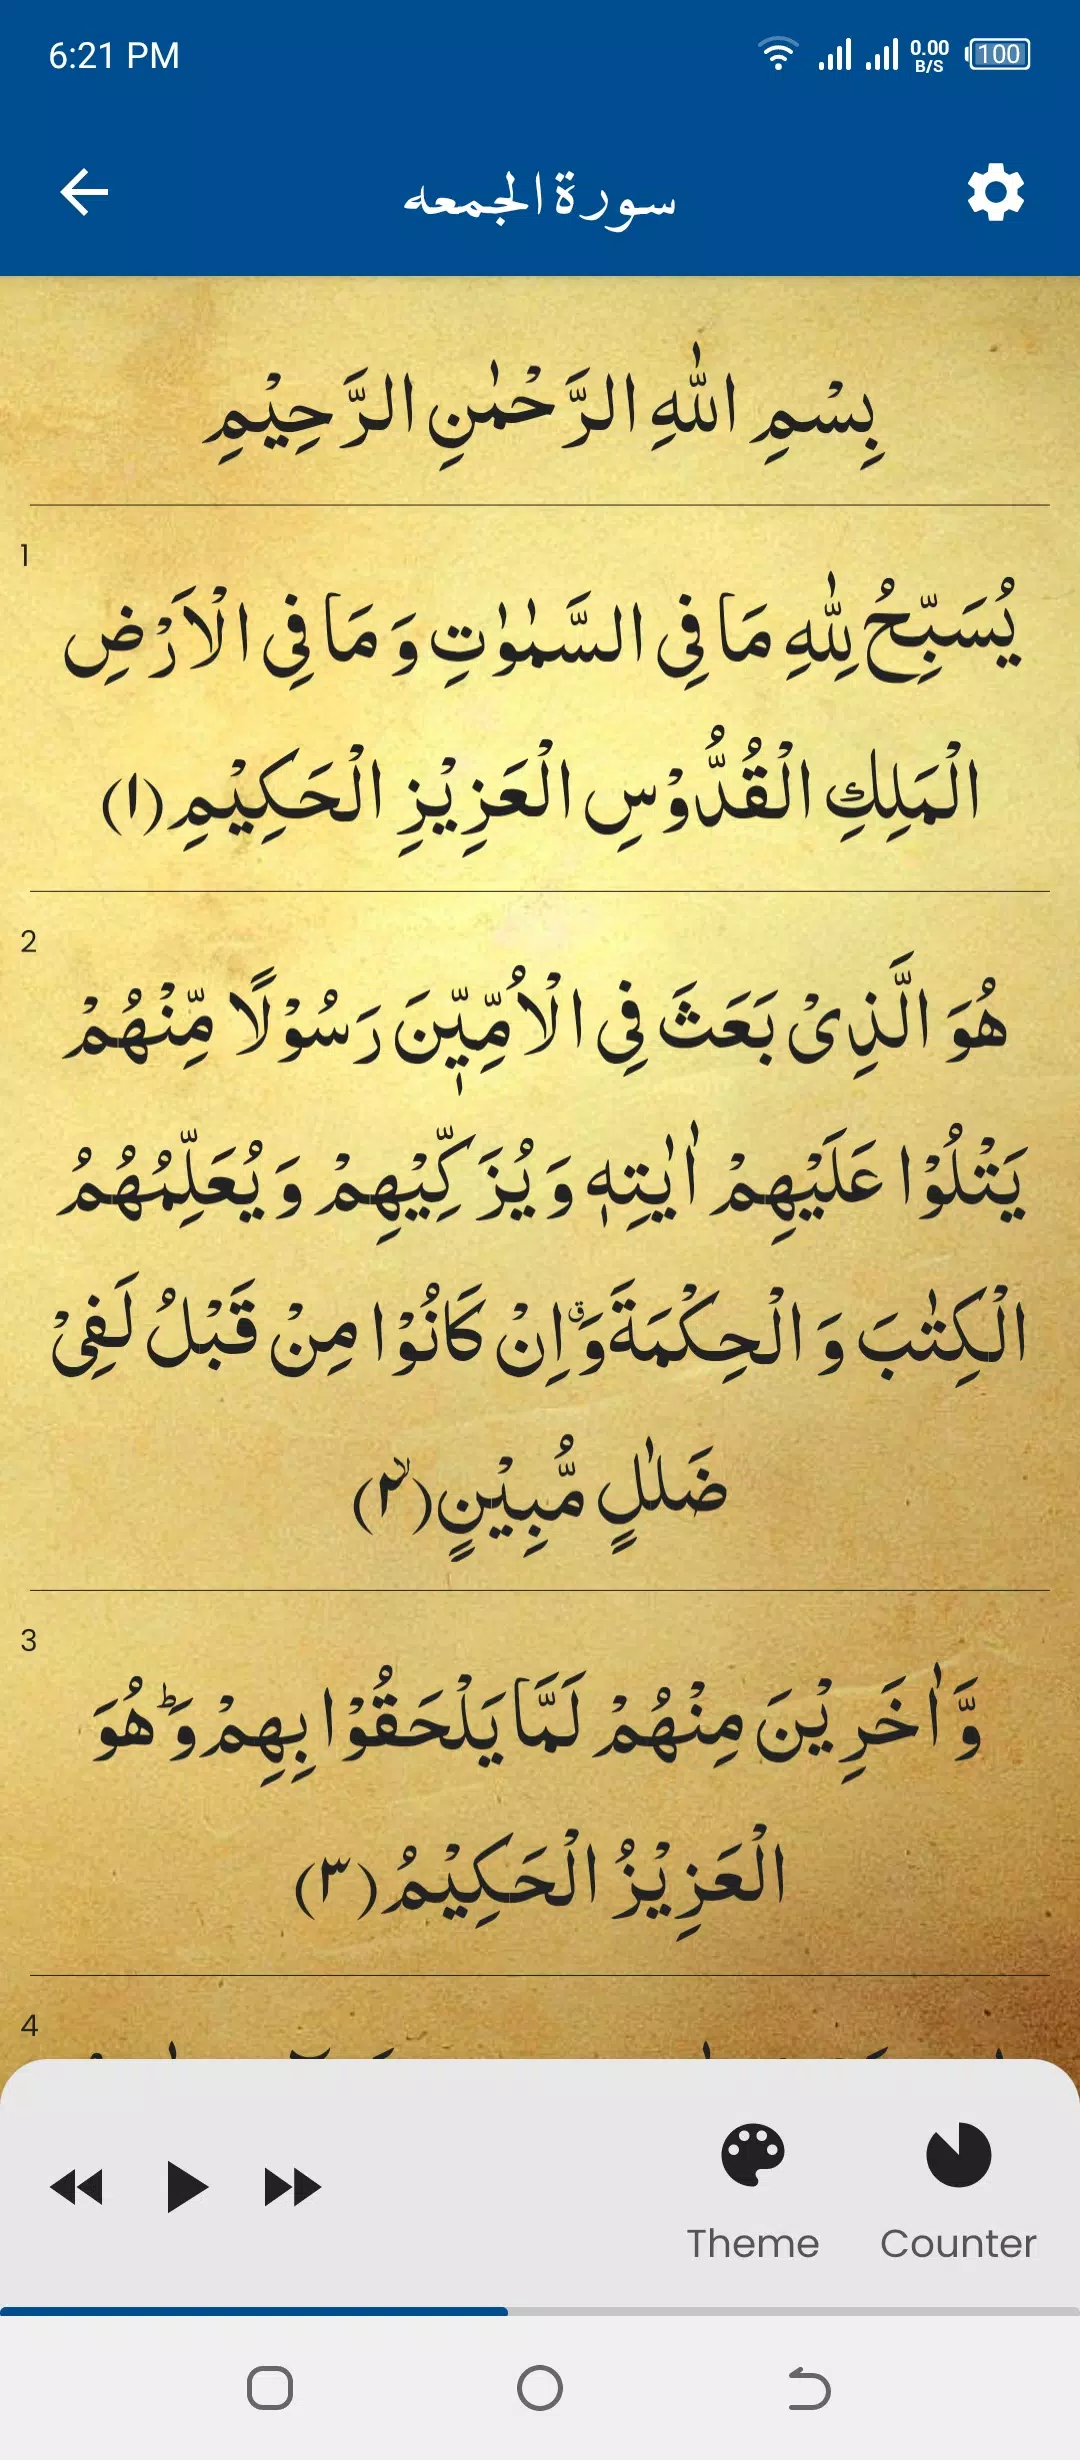 6:21 PM
0.00
B/S
100
سورة الجمعه
بِسْمِ اللّٰهِ الرَّحْمٰنِ الرَّحِيْمِ
1
يُسَبِّحُ لِلّٰهِ مَا فِى السَّمٰوٰتِ وَ مَا فِى الْاَرْضِ
الْمَلِكِ الْقُدُّوْسِ الْعَزِيْزِ الْحَكِيْمِ(۱)
2
هُوَ الَّذِىْ بَعَثَ فِى الْاُمِّيّٖنَ رَسُوْلًا مِّنْهُمْ
يَتْلُوْا عَلَيْهِمْ اٰيٰتِهٖ وَ يُزَكِّيْهِمْ وَ يُعَلِّمُهُمُ
الْكِتٰبَ وَ الْحِكْمَةَۗ وَ اِنْ كَانُوْا مِنْ قَبْلُ لَفِىْ
ضَلٰلٍ مُّبِيْنٍۙ(۲)
3
وَّ اٰخَرِيْنَ مِنْهُمْ لَمَّا يَلْحَقُوْا بِهِمْؕ وَ هُوَ
الْعَزِيْزُ الْحَكِيْمُ(۳)
4
Theme
Counter